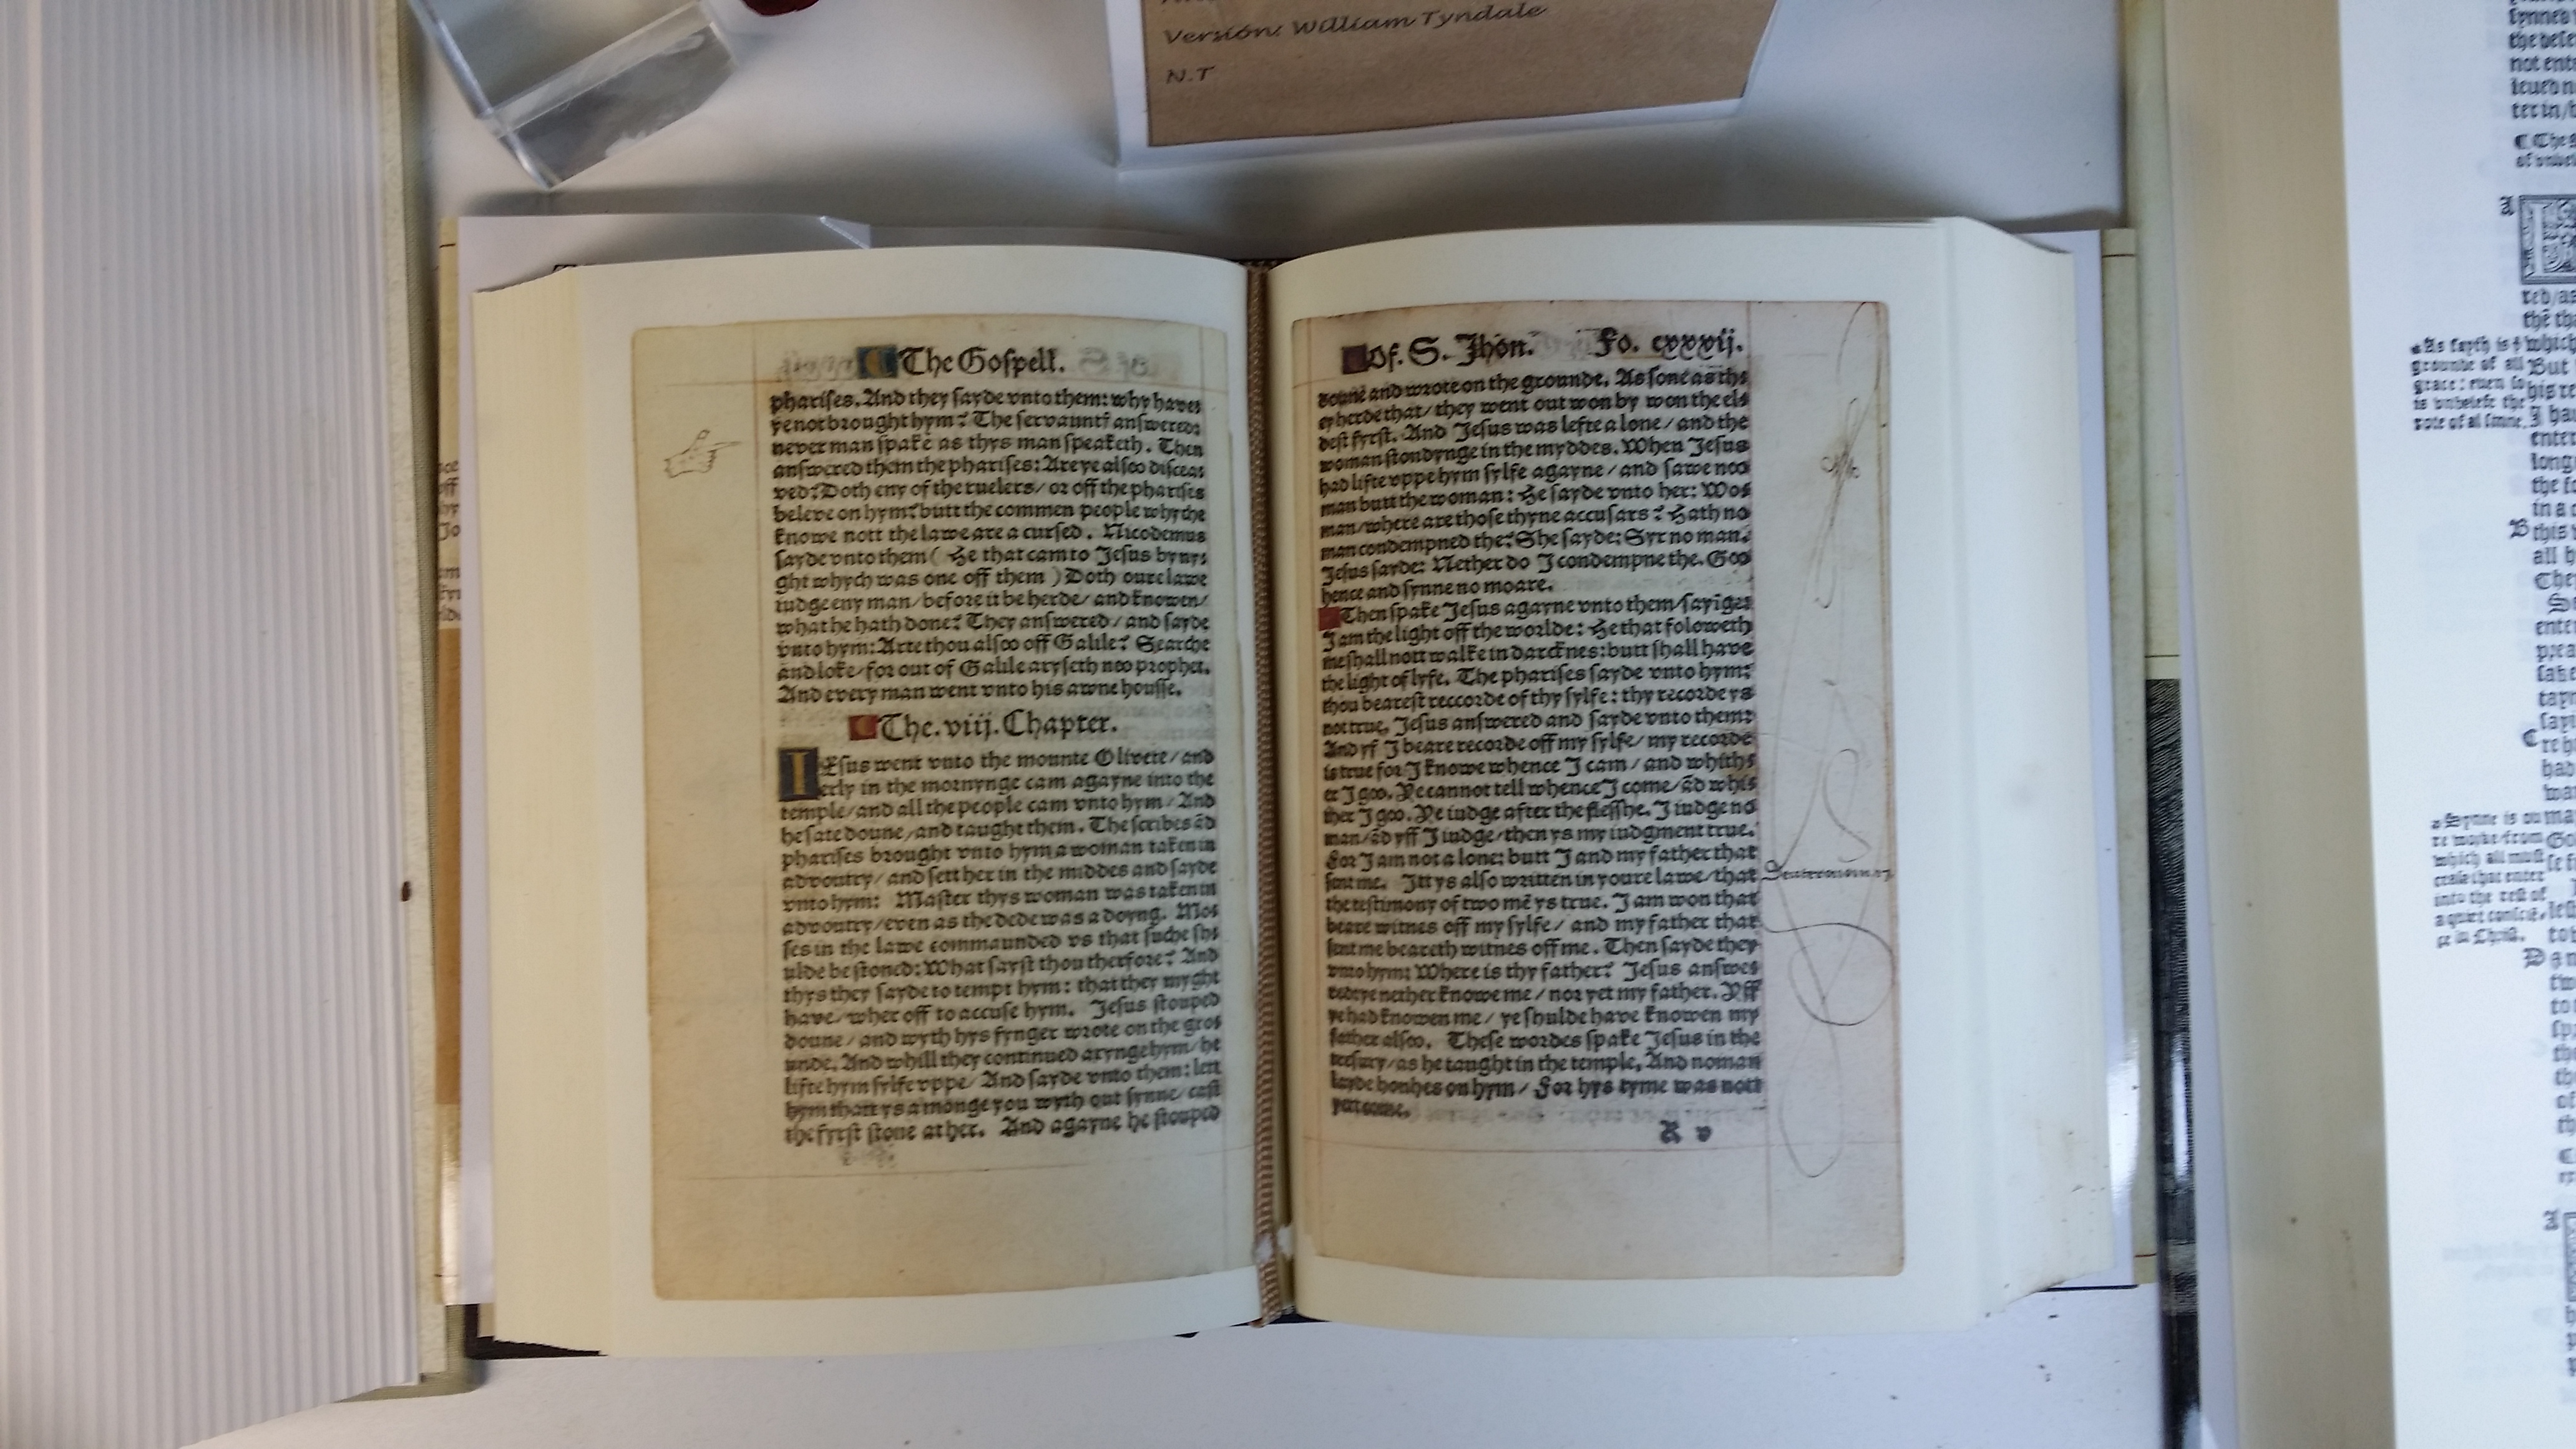 Versión: William Tyndale
N.T
The Gospell.
pharises. And they sayde vnto them: why have
ye not brought hym? The servaunts answered:
never man spake as thys man speaketh. Then
answered them the pharises: Are ye also disceа
ved? Doth eny of the ruelers/ or off the pharises
beleve on hym? butt the commen people whyche
knowe nott the lawe are a cursed. Nicodemus
sayde vnto them ( He that cam to Jesus by ny
ght whych was one off them ) Doth oure lawe
iudge eny man/ before it be herde/ and knowen/
what he hath done? They answered/ and sayde
vnto hym: Arte thou alsoo off Galile? Searche
and loke/ for out of Galile aryseth noo prophet.
And every man went vnto his awne housse.
The. viij. Chapter.
IEsus went vnto the mounte Olivete/ and
erly in the mornynge cam agayne into the
temple/ and all the people cam vnto hym/ And
he sate doune/ and taught them. The scribes ād
pharises brought vnto hym a woman taken in
advoutry/ and sett her in the middes and sayde
vnto hym: Master thys woman was taken in
advoutry/ even as the dede was a doyng. Mo
ses in the lawe commaunded vs that suche sh
ulde be stoned: What sayst thou therfore? And
thys they sayde to tempt hym: that they myght
have/ wher off to accuse hym. Jesus stouped
doune/ and wyth hys fynger wrote on the gro
unde. And whill they continued axynge hym/ he
lifte hym sylfe vppe/ And sayde vnto them: lett
hym thatt ys amonge you wyth out synne/ cast
the fyrst stone at her. And agayne he stouped
Of. S. Jhon. Fo. cxxxvij.
doune and wrote on the grounde. As sone as th
ey herde that/ they went out won by won the el
dest fyrst. And Jesus was lefte a lone/ and the
woman stondynge in the myddes. When Jesus
had lifte vppe hym sylfe agayne/ and sawe noo
man butt the woman: He sayde vnto her: Wo
man/ where are those thyne accusars? Hath no
man condempned the? She sayde: Syr no man.
Jesus sayde: Nether do I condempne the. Goo
hence and synne no moare.
Then spake Jesus agayne vnto them/ sayīge:
I am the light off the worlde: He that foloweth
me shall nott walke in darcknes: butt shall have
the light of lyfe. The pharises sayde vnto hym:
thou bearest reccorde of thy sylfe: thy recorde ys
not true. Jesus answered and sayde vnto them:
And yf I beare recorde off my sylfe/ my recorde
is true for I knowe whence I cam/ and whith
er I goo. Ye cannot tell whence I come/ ād whi
ther I goo. Ye iudge after the flesshe. I iudge no
man/ ād yff I iudge/ then ys my iudgment true.
For I am not a lone: butt I and my father that
sent me. Itt ys also written in youre lawe/ that
the testimony of two mē ys true. I am won that
beare witnes off my sylfe/ and my father that
sent me beareth witnes off me. Then sayde they
vnto hym: Where is thy father? Jesus answe
red: ye nether knowe me/ nor yet my father. Yff
ye had knowen me/ ye shulde have knowen my
father alsoo. These wordes spake Jesus in the
tresury/ as he taught in the temple, And no man
layde hondes on hym/ For hys tyme was nott
yett come.
R v